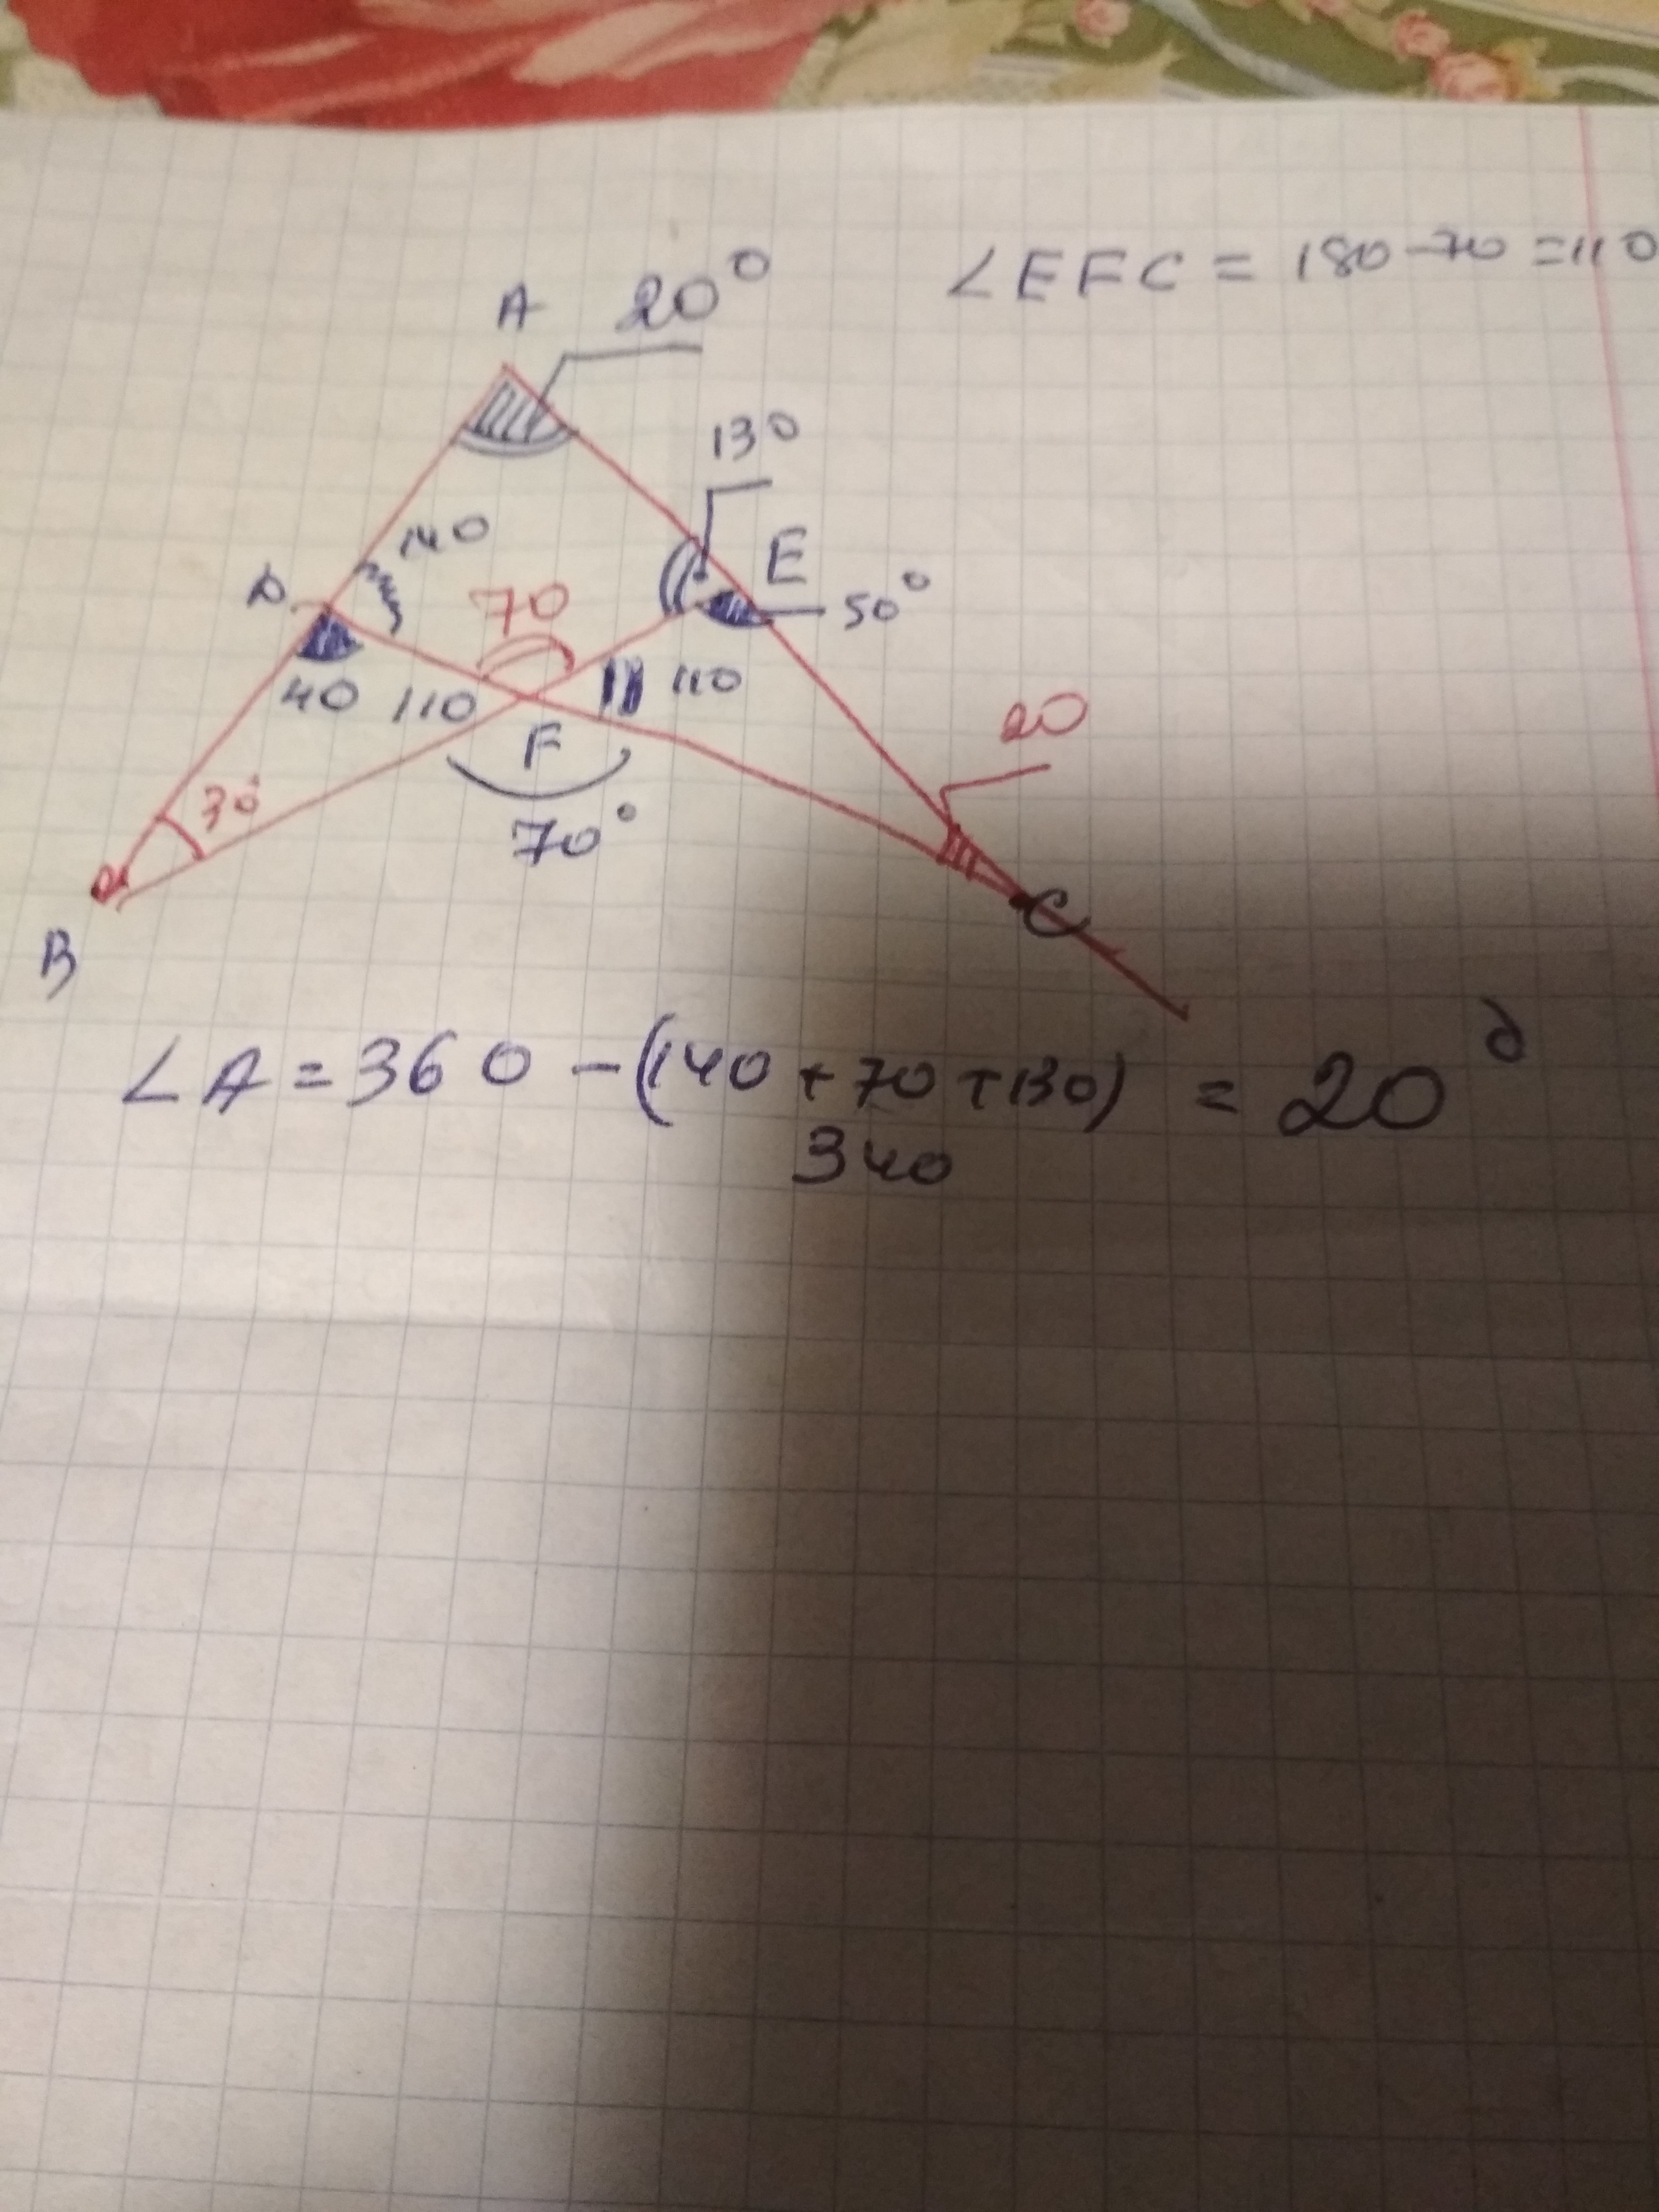 ∠EFC = 180-70=110
A 20°
130
140
E
D
70
50°
40
110
110
F
20
30°
70°
C
B
∠A=360-(140+70+130) = 20°
340